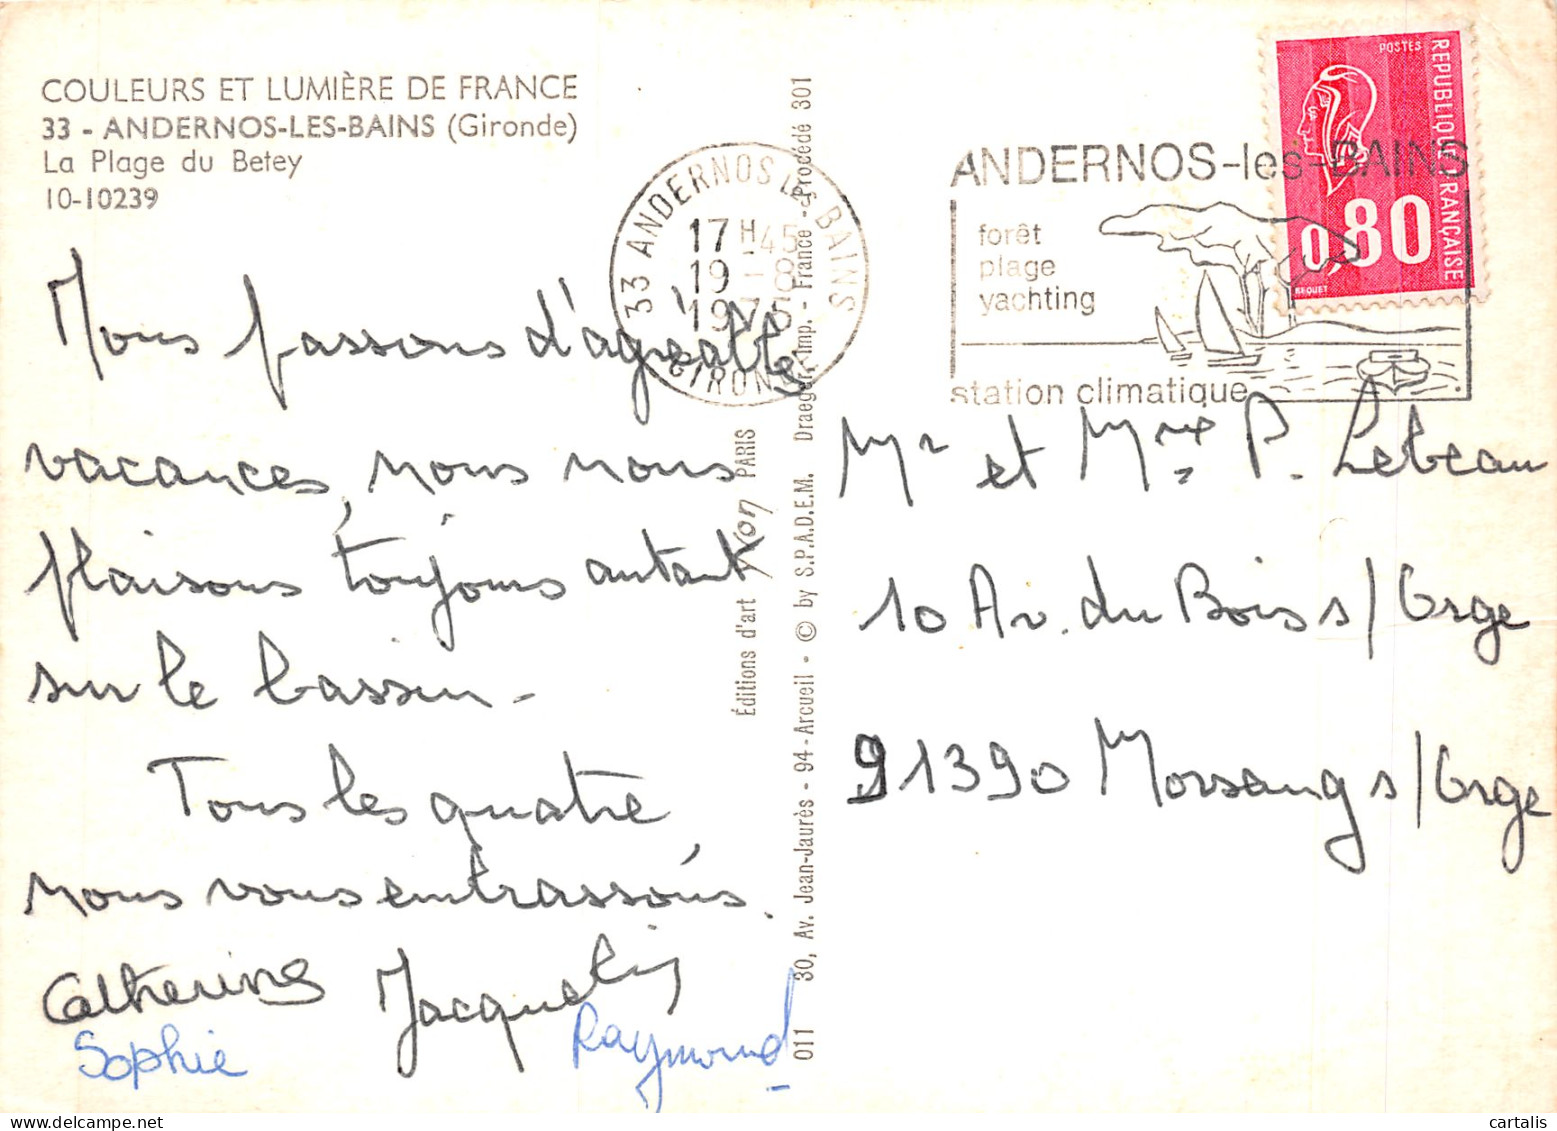 COULEURS ET LUMIÈRE DE FRANCE
33 - ANDERNOS-LES-BAINS (Gironde)
La Plage du Betey
10-10239
Nous passons d'agréables
vacances, nous nous
plaisons toujours autant
sur le bassin -
Tous les quatre
nous vous embrassons.
Catherine Jacqueline
Sophie Raymond
33 ANDERNOS LES BAINS
17 H 45
19 - 8
1975
GIRONDE
Éditions d'art Yvon PARIS
011 30, Av. Jean-Jaurès - 94 - Arcueil - © by S.P.A.D.E.M. Draeger, imp. - France - Procédé 301
ANDERNOS-les-BAINS
forêt
plage
yachting
station climatique
POSTES
REPUBLIQUE FRANÇAISE
0,80
BEQUET
Mr et Mme P. Lebeau
10 Av. du Bois s/Orge
91390 Morsang s/Orge
cartalis